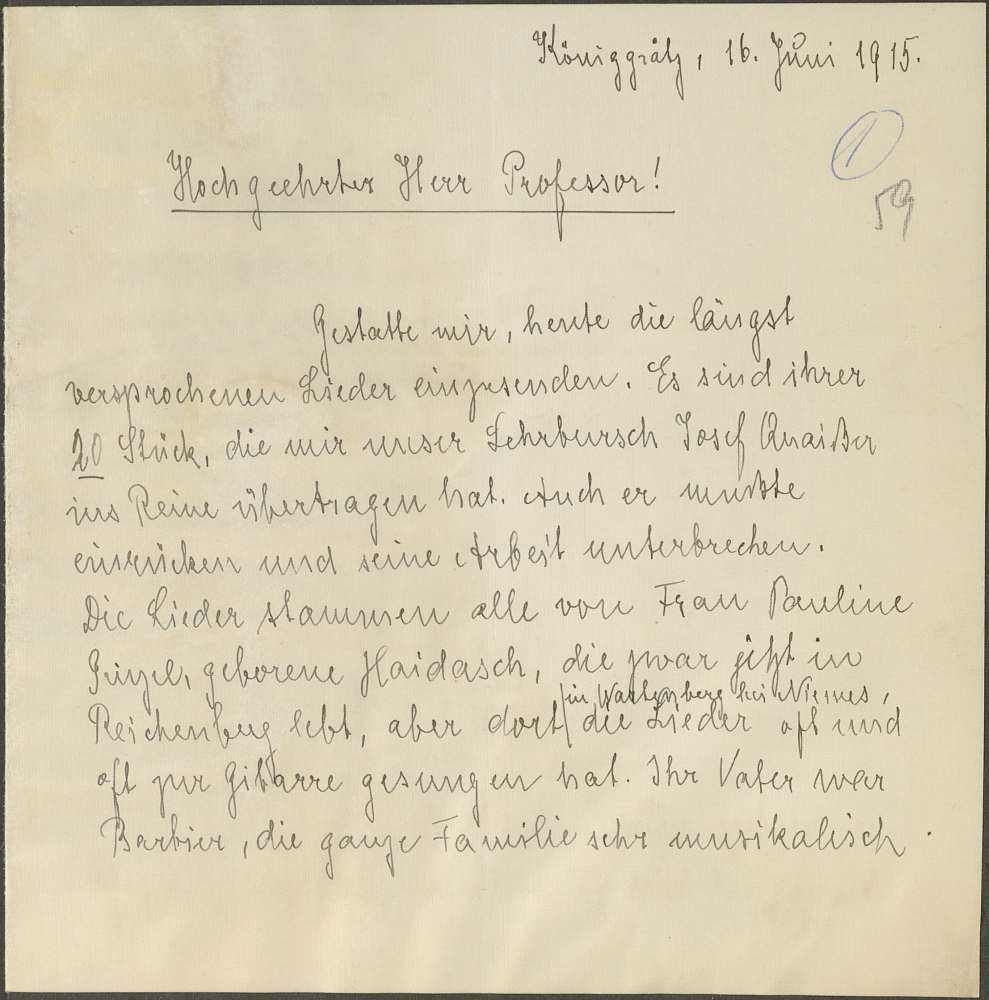 Königgrätz, 16. Juni 1915.
1
59
Hochgeehrter Herr Professor!
Gestatte mir, heute die längst
versprochenen Lieder einzusenden. Es sind ihrer
20 Stück, die mir unser Lehrbursch Josef Anaißer
ins Reine übertragen hat. Auch er mußte
einrücken und seine Arbeit unterbrechen.
Die Lieder stammen alle von Frau Pauline
geborene Haidasch, die zwar jetzt in
in Wartenberg bei Niemes,
Reichenberg lebt, aber dort die Lieder oft und
oft zur Gitarre gesungen hat. Ihr Vater war
Barbier, die ganze Familie sehr musikalisch.